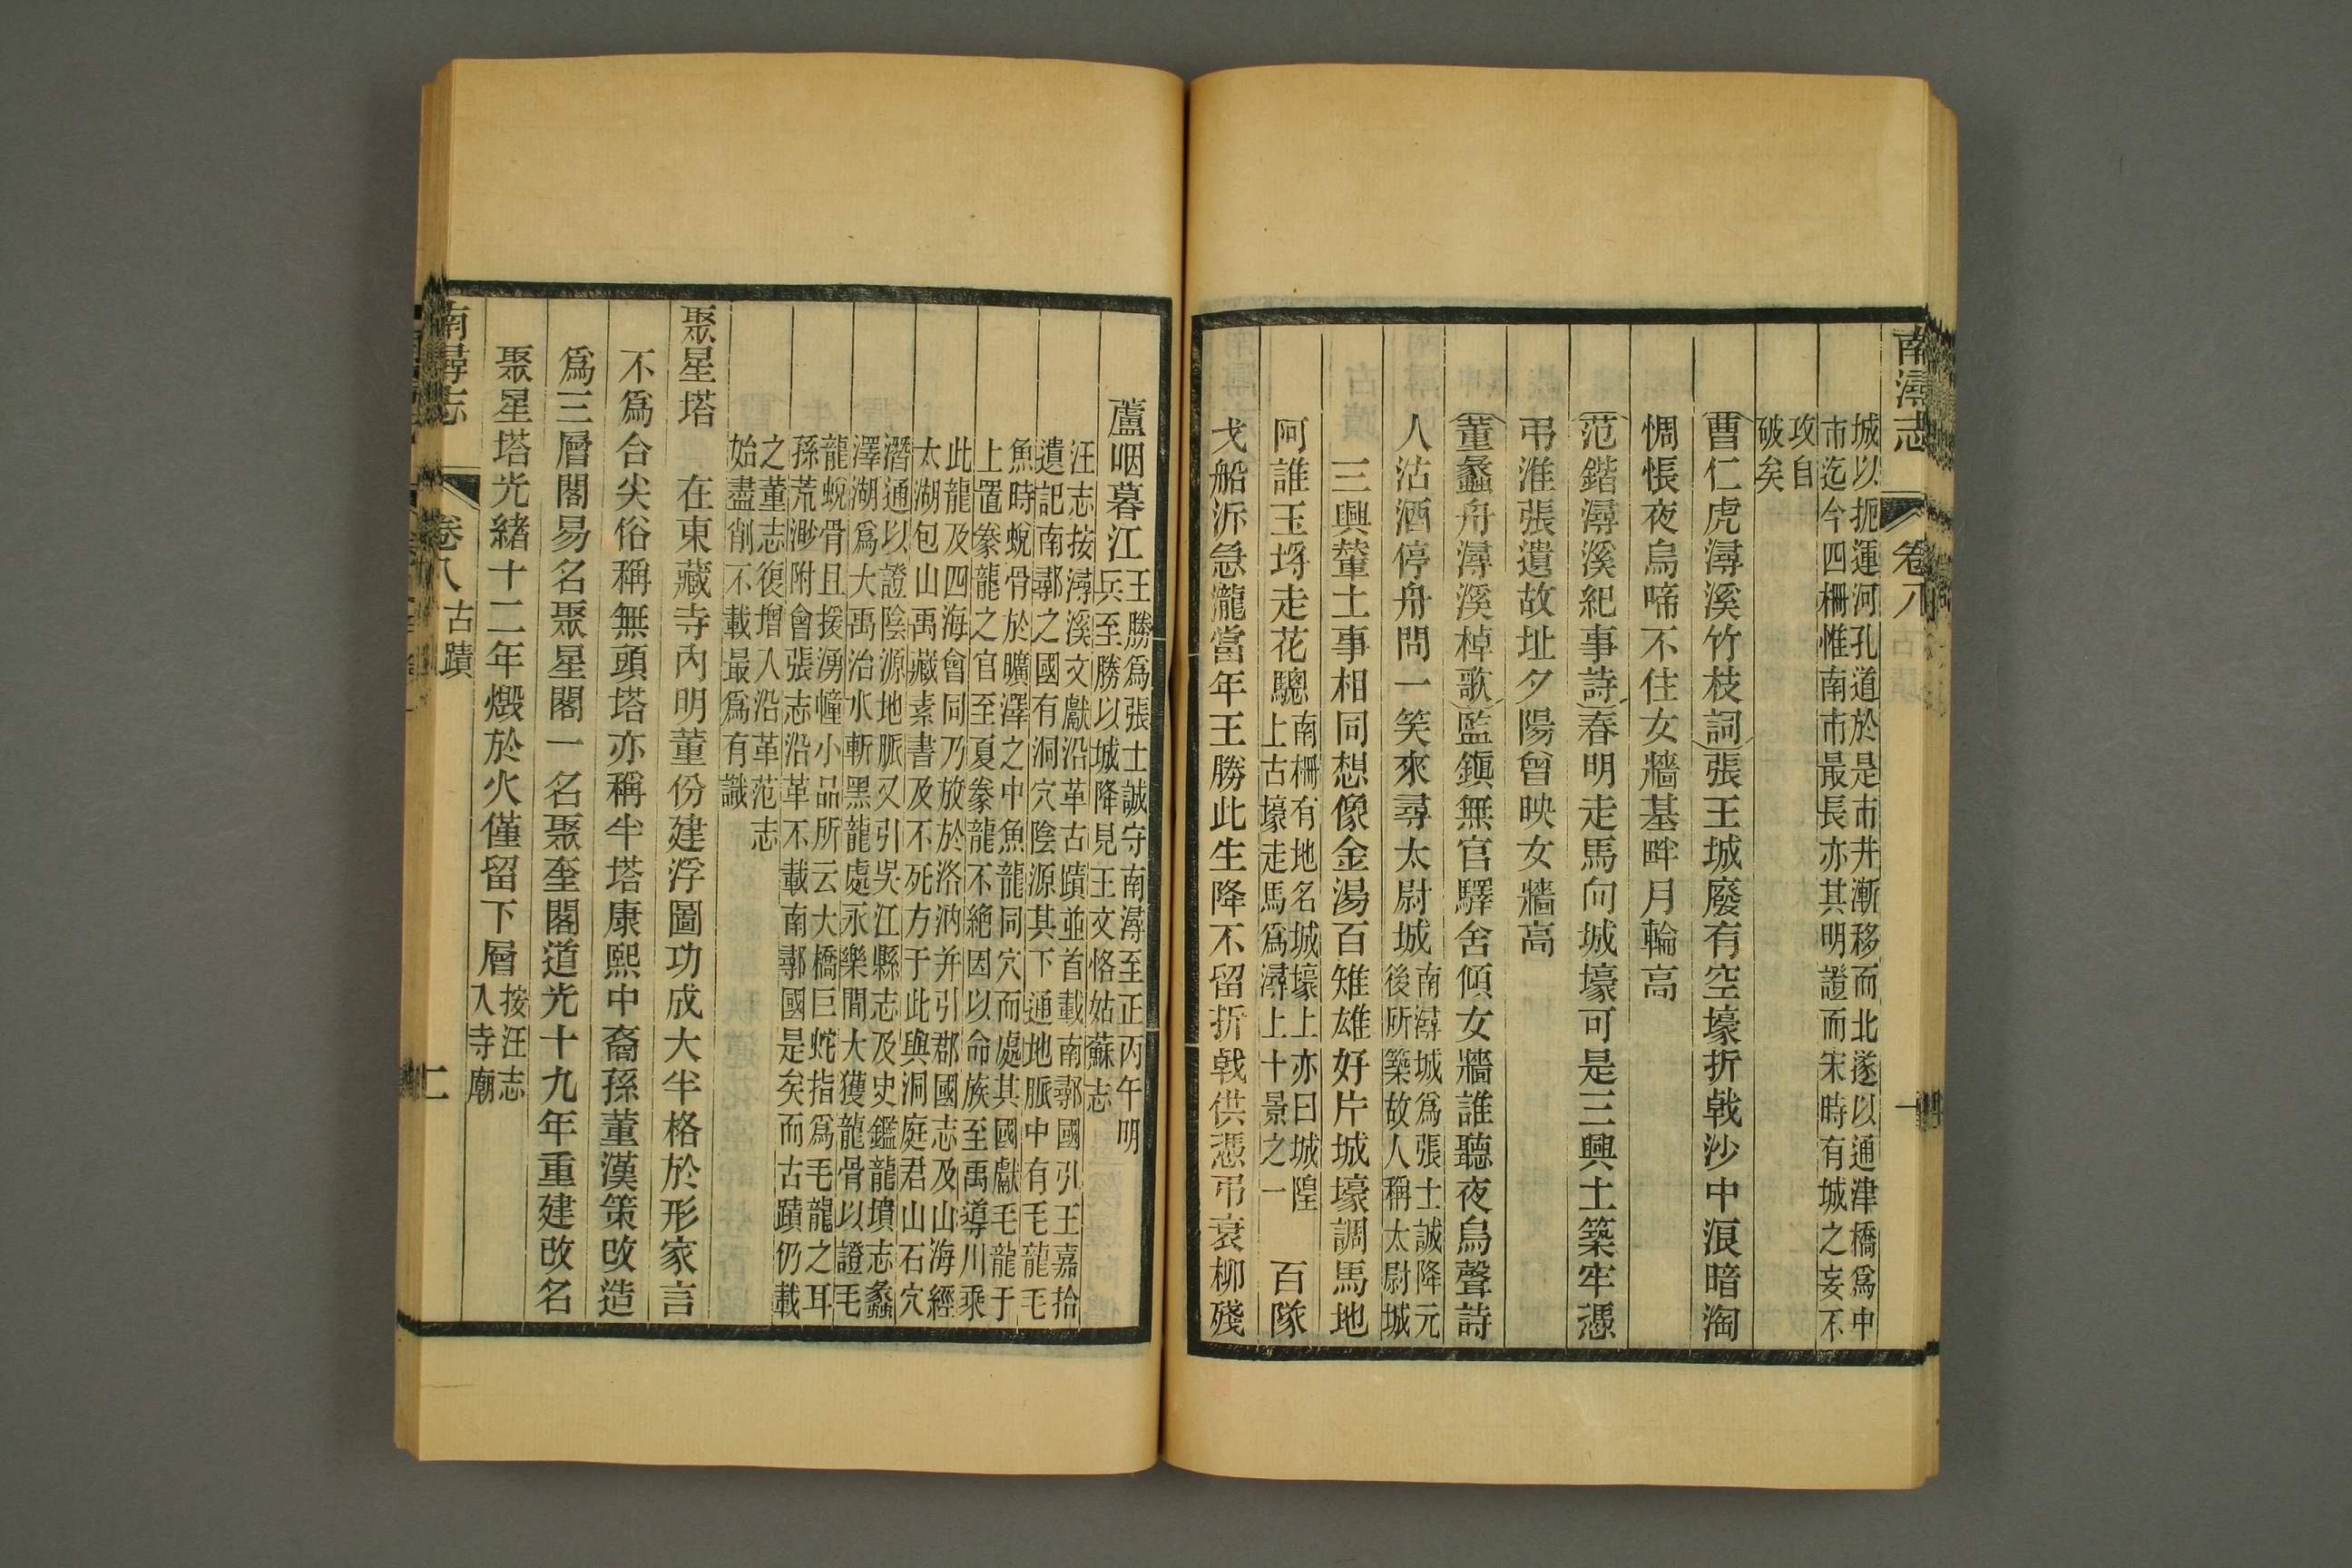 南潯志
卷八
一
城以扼運河孔道於是市井漸移而北遂以通津橋爲中
市迄今四柵惟南市最長亦其明證而宋時有城之妄不
攻自
破矣
曹仁虎潯溪竹枝詞張王城廢有空壕折戟沙中浪暗淘
惆悵夜烏啼不住女牆基畔月輪高
范鍇潯溪紀事詩春明走馬向城壕可是三興土築牢憑
弔淮張遺故址夕陽曾映女牆高
董蠡舟潯溪棹歌監鎭無官驛舍傾女牆誰聽夜烏聲詩
人沽酒停舟問一笑來尋太尉城
南潯城爲張士誠降元
後所築故人稱太尉城
三興輦土事相同想像金湯百雉雄好片城壕調馬地
阿誰玉埒走花驄
南柵有地名城壕上亦曰城隍
上古壕走馬爲潯上十景之一
百隊
戈船泝急瀧當年王勝此生降不留折戟供憑弔衰柳殘
蘆咽暮江
王勝爲張士誠守南潯至正丙午明
兵至勝以城降見王文恪姑蘇志
汪志按潯溪文獻沿革古蹟並首載南鄩國引王嘉拾
遺記南鄩之國有洞穴陰源其下通地脈中有毛龍毛
魚時蛻骨於曠澤之中魚龍同穴而處其國獻毛龍于
上置豢龍之官至夏豢龍不絕因以命族至禹導川乘
此龍及四海會同乃放於洛汭幷引郡國志及山海經
太湖包山禹藏素書及不死方于此與洞庭君山石穴
潛通以證陰源地脈又引吳江縣志及史鑑龍墳志蠡
澤湖爲大禹治水斬黑龍處永樂間大獲龍骨以證毛
龍蛻骨且援湧幢小品所云大橋巨蛇指爲毛龍之耳
孫荒渺附會張志沿革不載南鄩國是矣而古蹟仍載
之董志復增入沿革范志
始盡削不載最爲有識
聚星塔
在東藏寺內明董份建浮圖功成大半格於形家言
不爲合尖俗稱無頭塔亦稱半塔康熙中裔孫董漢策改造
爲三層閣易名聚星閣一名聚奎閣道光十九年重建改名
聚星塔光緖十二年燬於火僅留下層
按汪志
入寺廟
南潯志
卷八
古蹟
二